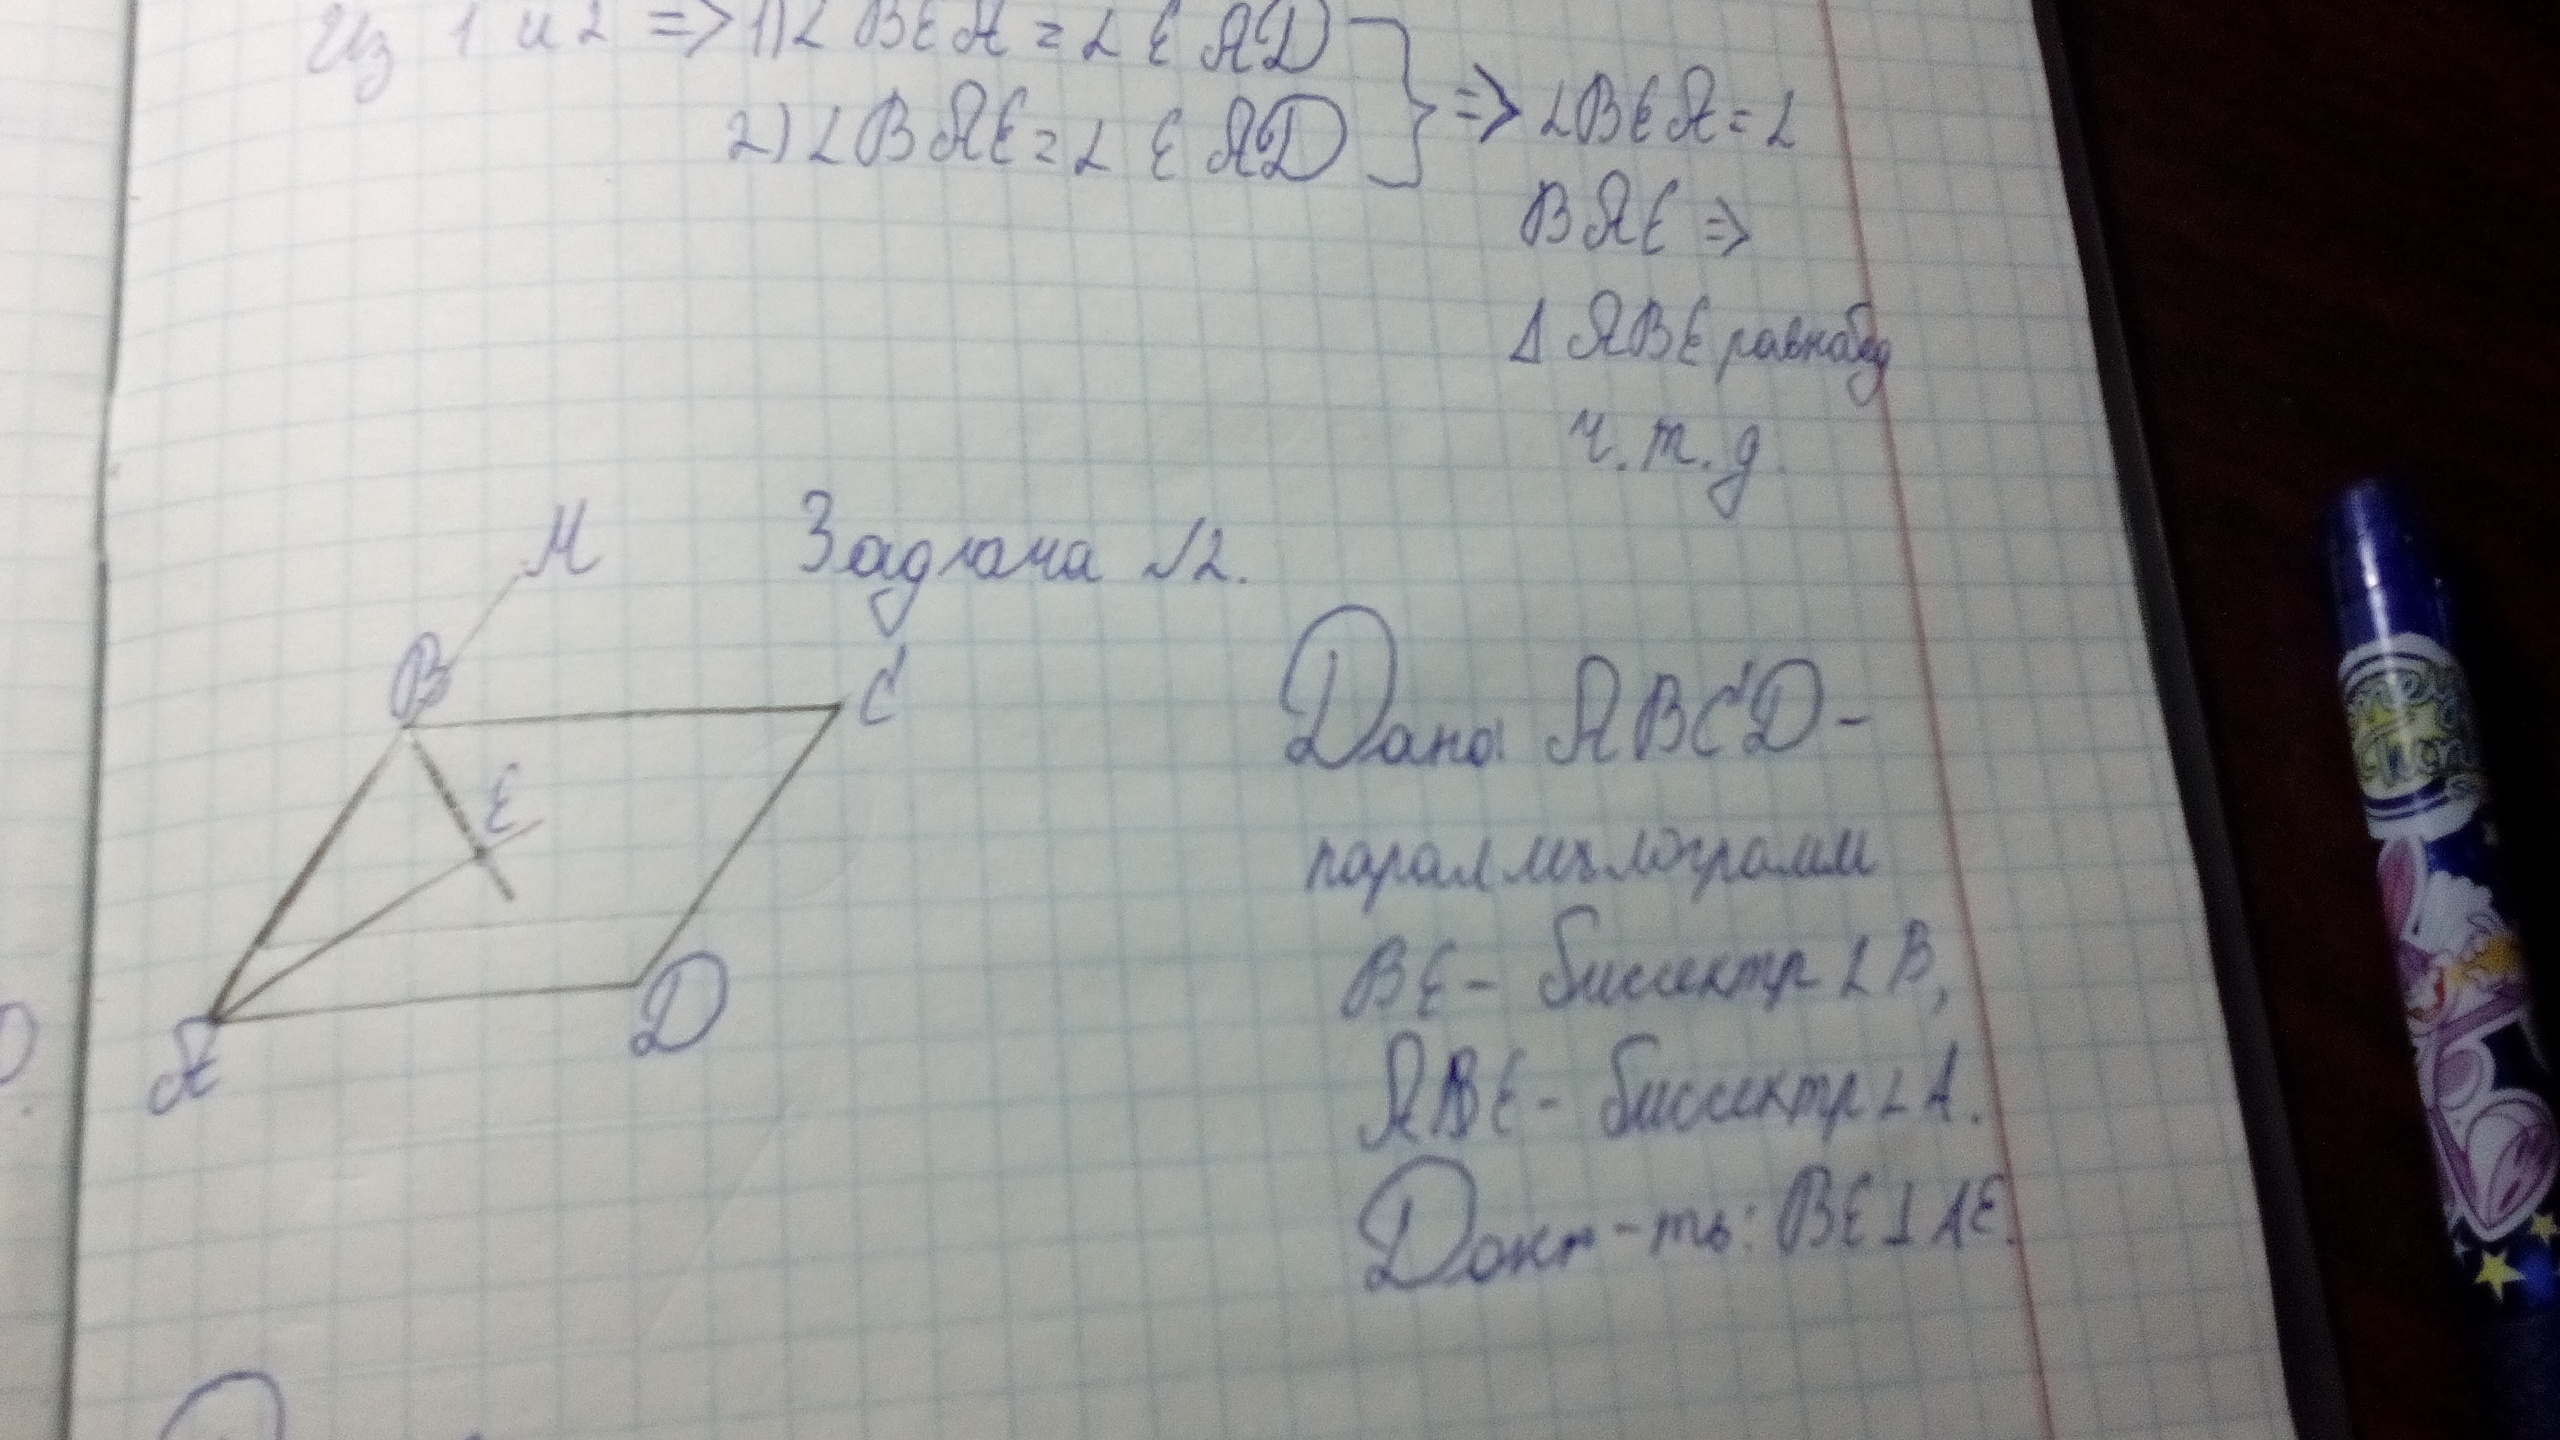 Из 1 и 2 => 1) ∠ BEA = ∠ EAD
2) ∠ BAE = ∠ EAD
=> ∠BEA = ∠
BAE =>
Δ ABE равнобед
ч.т.д.
Задача №2.
M
B
C
E
A
D
Дано: ABCD -
параллелограмм
BE - биссектр ∠ B,
ABE - биссектр ∠ A.
Док-ть: BE ⊥ AE.